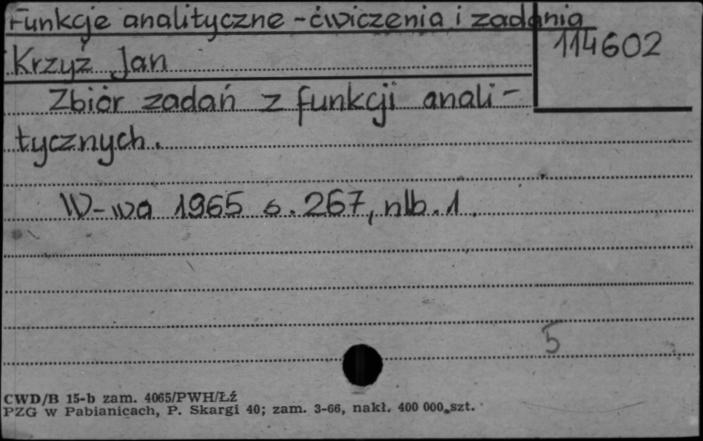 Funkcje analityczne - ćwiczenia i zadania
114602
Krzyż Jan
Zbiór zadań z funkcji anali-
tycznych.
W-wa 1965 s. 267, nlb. 1.
5
CWD/B 15-b zam. 4065/PWH/Łź
PZG w Pabianicach, P. Skargi 40; zam. 3-66, nakł. 400 000 szt.